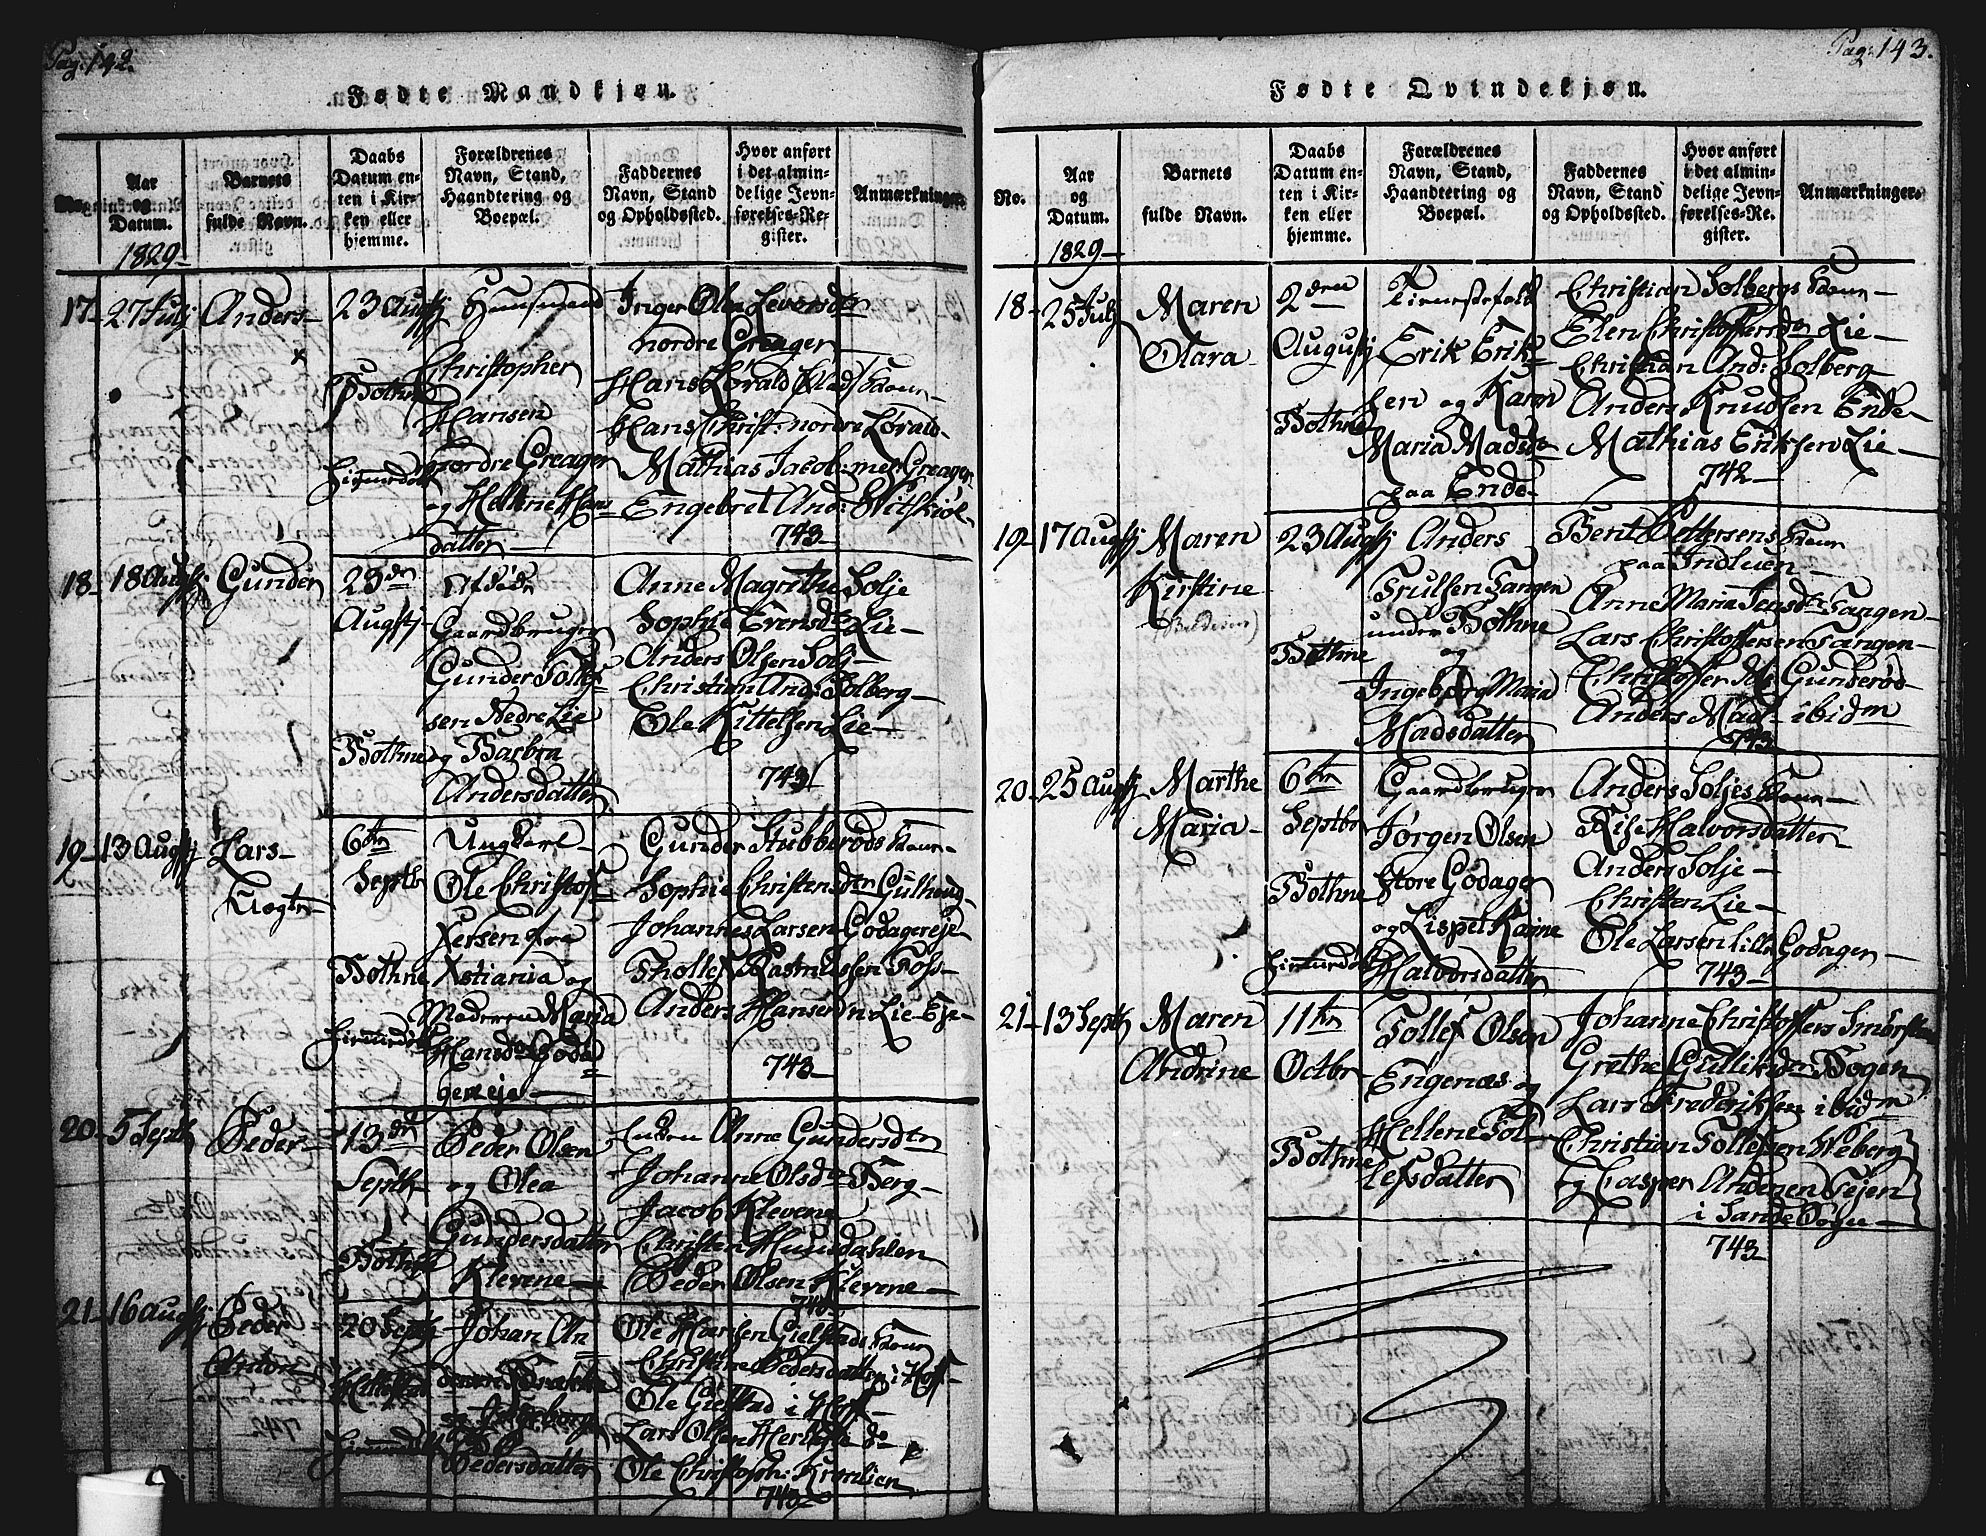 Pag: 142.
Fødte Mandkjøn.
No.
Aar og Datum.
Barnets fulde Navn.
Daabs Datum enten i Kirken eller hjemme.
Forældrenes Navn, Stand, Haandtering og Boepæl.
Faddernes Navn, Stand og Opholdssted.
Hvor anført i det almindelige Jevnførelses-Register.
Anmærkninger.
1829
17 27 July Anders
23 Augsti
Bothne
Huusmand
Christopher
Hansen
nordre Greager
og Hellene Hans
datter
Inger Olea Leversdr
nordre Greager
Hans Lørald
Hans Christ: nordre Lørald
Mathias Jacob: Greager
Engebret And: Vitskiøl
743
18 18 Augsti Gunder
23de
Augsti
Bothne
Afdøde
Gaardbruger
Gunder Tollef
sen Nedre Lie
og Barbra
Andersdatter
Anne Magrethe Solje
Sophie Evensdr Lie
Anders Olsen Solj
Christian And: Solberg
Ole Kittelsen Lie
743
19 13 Augsti Lars
6te
Septbr
Bothne
Ungkarl
Ole Christof
fersen fra
Xstiania og
Maria
Hansdr Goda
gereje
Gunder Stubberods Kone
Sophie Christensdtr Gulhaug
Johannes Larsen Godagereje
Thollef Rasmussen Foss
Anders Hansen n Lie Eje
743
20 5 Septbr Peder
13de
Septbr
Bothne
Peder Olsen
og Olea
Gundersdatter
Klevene
Anne Gundersdtr
Johanne Olsdr Berg
Jacob Klevene
Christen Hunsdahlen
Peder Olsen Klevene
743
21 16 Augsti Peder
Anton
20 Septbr
Johan An
dersen
og
Pedersdatter
Ole Hansen Gielstads Kone
Christine Pedersdatter i Hoff
Ole Gielstad i Hoff
Lars Olsen do
Ole Christoph: Kronlien
743
Pag: 143.
Fødte Qvindekjøn.
No.
Aar og Datum.
Barnets fulde Navn.
Daabs Datum enten i Kirken eller hjemme.
Forældrenes Navn, Stand, Haandtering og Boepæl.
Faddernes Navn, Stand og Opholdsted.
Hvor anført i det almindelige Jevnførelses-Register.
Anmærkninger.
1829
18 25 July Maren
Olara
2den
Augusti
Bothne
Tienestefolk
Erik Erik
sen og Karen
Maria Madsdr
paa Ende
Christian Solbergs Kone
Elen Christoffersdr Lie
Christian And: Solberg
Anders Knudsen Ende
Mathias Eriksen Lie
742
19 17 Augsti Maren
Kirstine
23 Augsti
Bothne
Anders
Trulsen Tangen
under Bothne
og
Ingeborg Maria
Madsdatter
Bent Pettersens Kone
paa Indluen
Anne Maria Jensdr Tangen
Lars Christoffersen Tangen
Christoffer Gunderød
Anders Mads ibidm
743
20 25 Augsti Marthe
Maria
6te
Septbr
Bothne
Gaardbruger
Jørgen Olsen
Store Godager
og Lispet Karine
Halvorsdatter
Anders Soljes Kone
Rise Halvorsdatter
Anders Solje
Christen Lie
Ole Larsen lille Godager
743
21 13 Septbr Maren
Andrine
11te
Octbr
Bothne
Tollef Olsen
Engenæs og
Hellene Tol
lefsdatter
Johanne Christoffers
Grethe Gulliksdtr Bogen
Lars Frederiksen ibidm
Christian Tollefsen Weberg
og Casper Andersen Tejen
i Sande Sogn
743